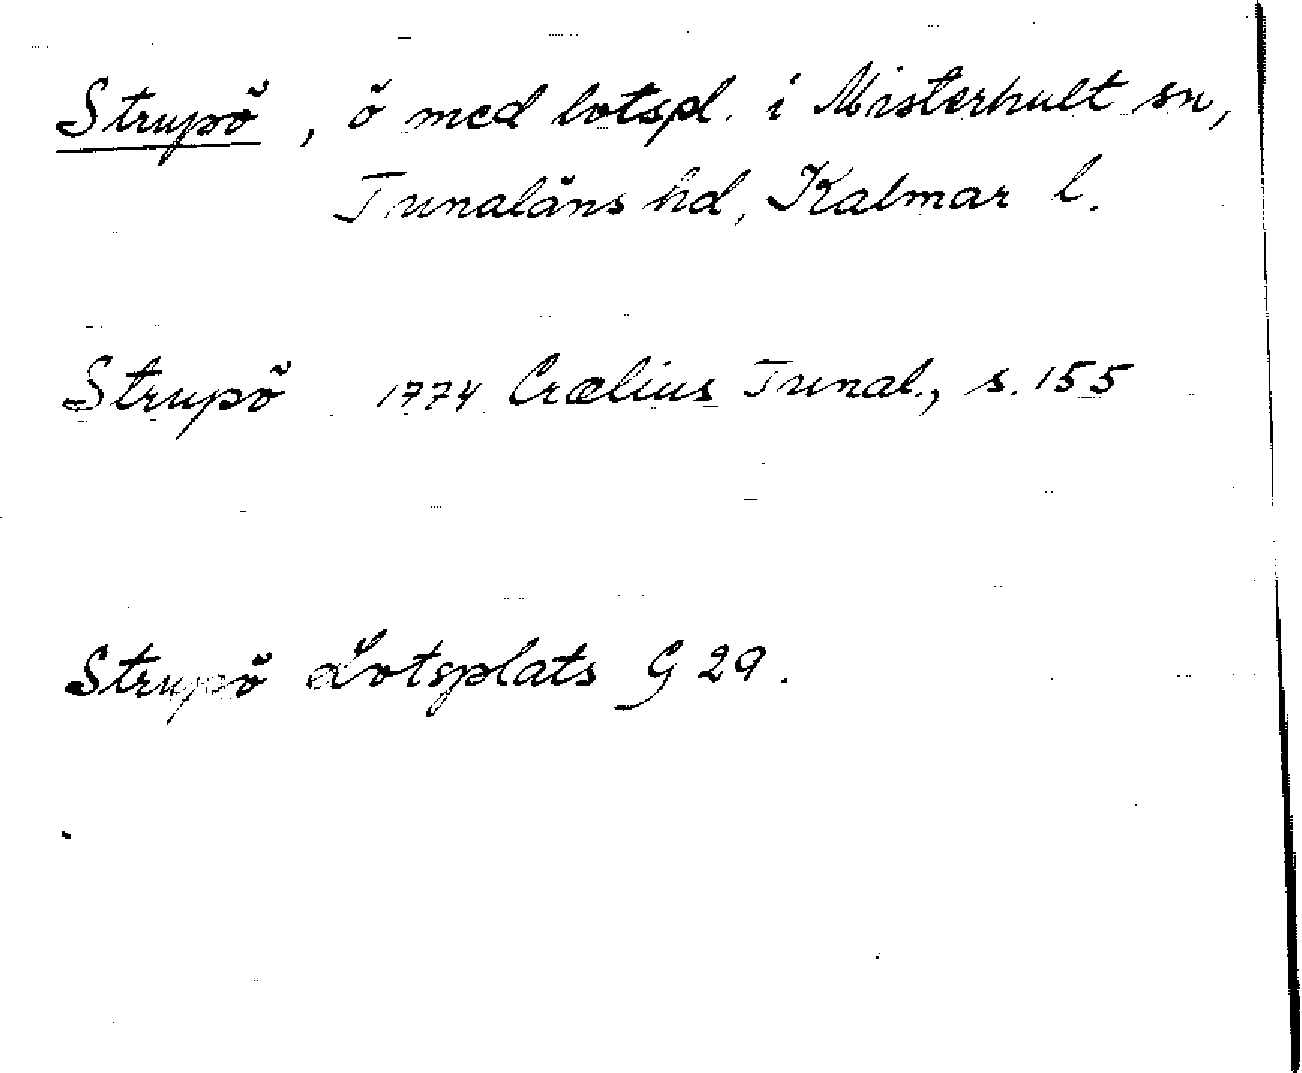 Strupö, ö med lotspl. i Misterhult sn,
Tunaläns hd, Kalmar l.
Strupö 1774 Crælius Tunal., s. 155
Strupö Lotsplats G 29.